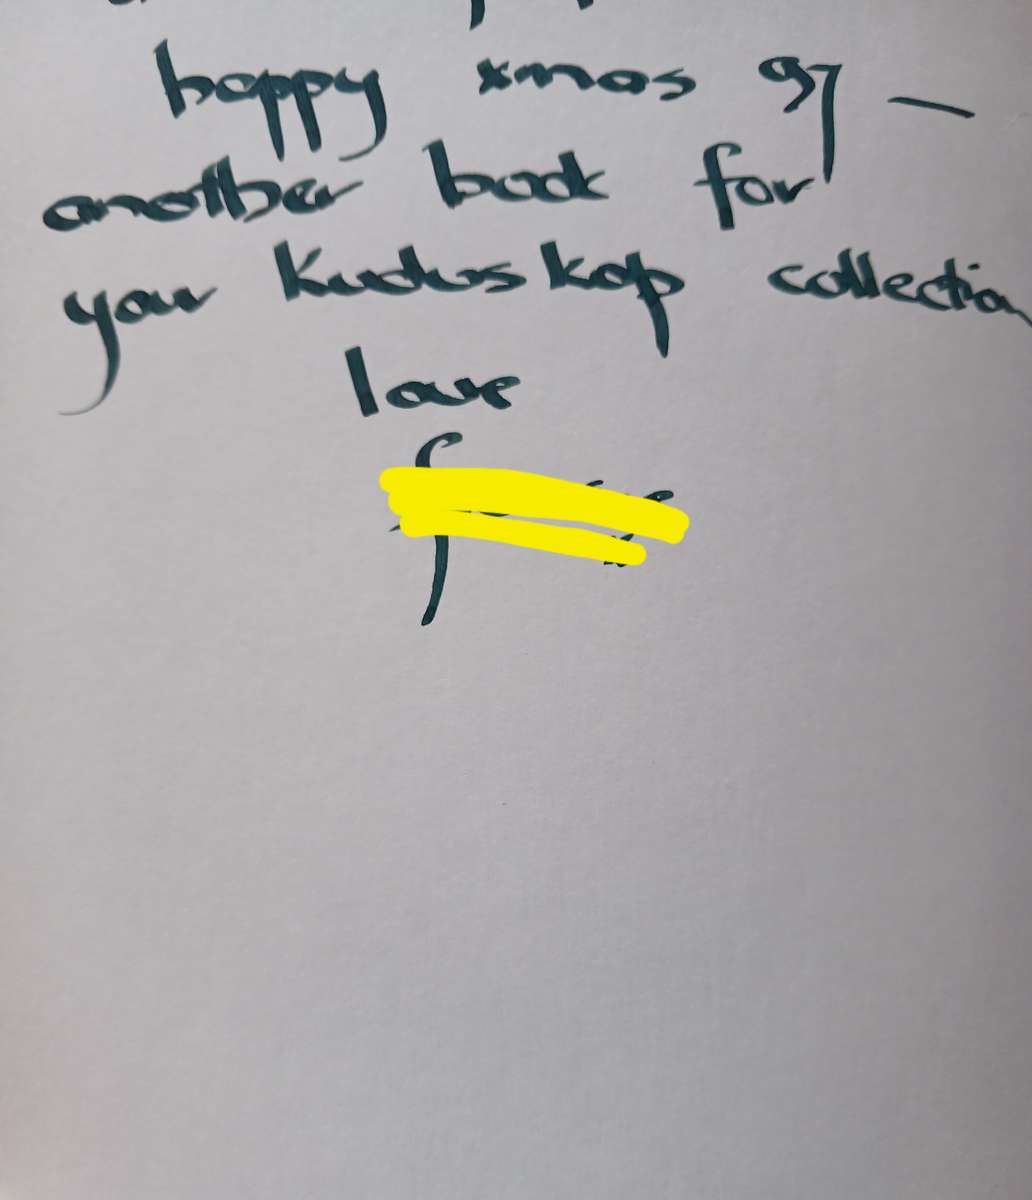 happy xmas 97 —
another book for
your Kudus kop collection
love